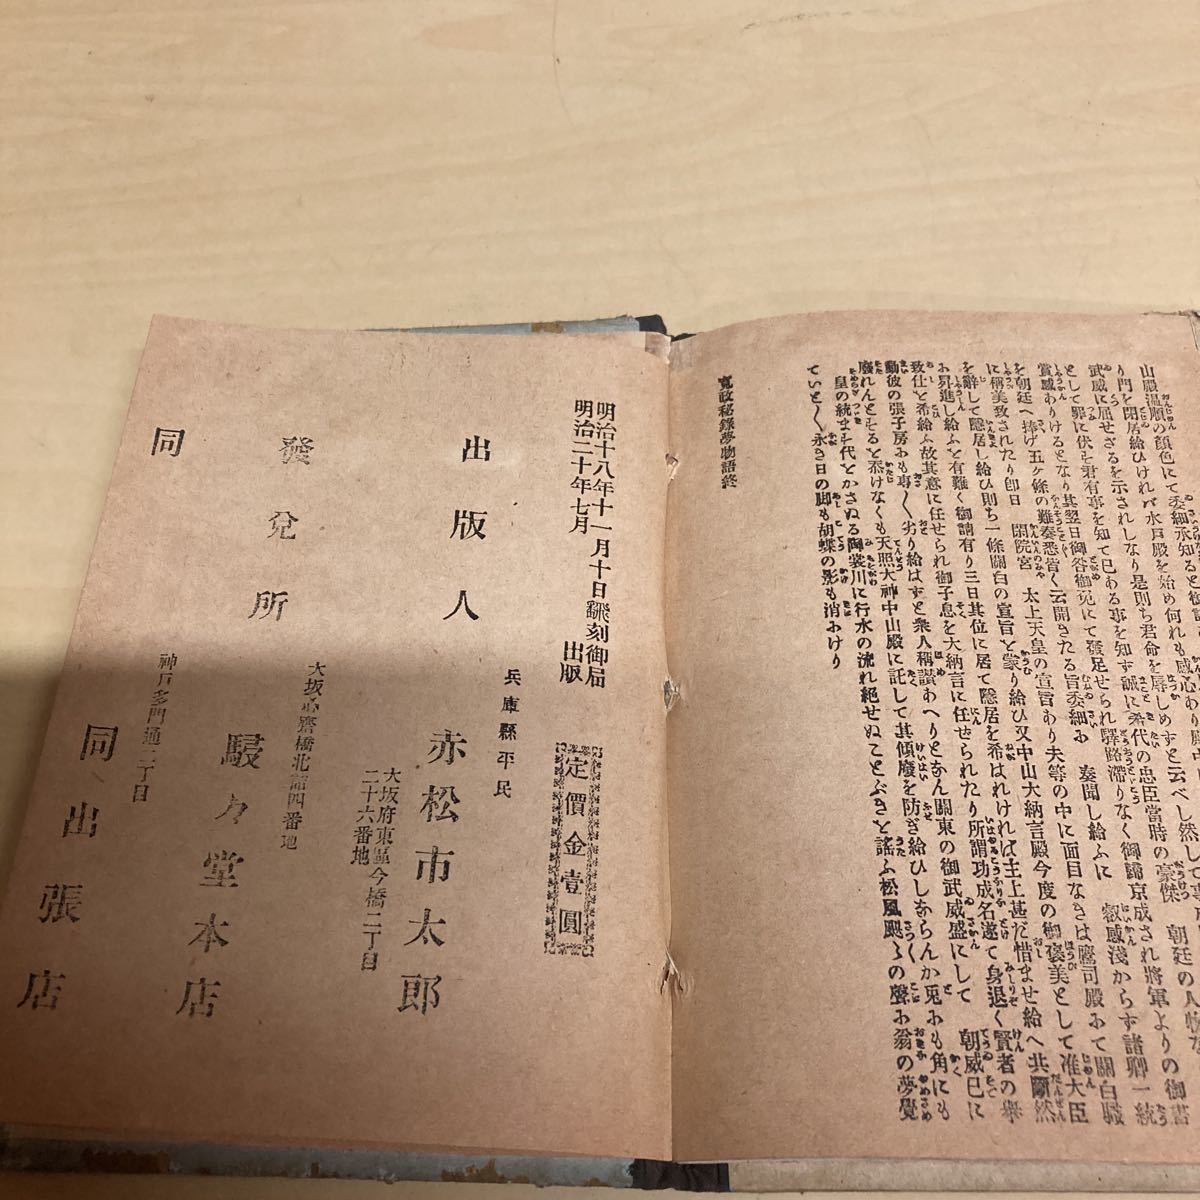 山殿温順の顏色にて委細承知ると御
り門を閉居給ひければ水戸殿を始め何れも感心あり殿中
武威に屈せざるを示されしなり是則ち君命を辱しめずと云べし然して
として罪に伏を君有事を知て已ある事を知す誠に希代の忠臣當時の豪傑 朝廷の人物な
賞感ありけるとなり其翌日御咎御免にて發足せられ驛路滯りなく御歸京成され將軍よりの御書
を朝廷へ捧げ五ケ條の難奏悉皆く云開きたる旨委細に 奏聞し給ふに 叡感淺からず諸卿一統
に稱美致されたり卽日 閑院宮 太上天皇の宣旨あり夫等の中に面目なきは鷹司殿にて關白職
を辭して隱居し給ひ則ち一條關白の宣旨を蒙り給ひ又中山大納言殿今度の御褒美として准大臣
に昇進し給ふを有難く御請有り三日其位に居て隱居を希はれければ主上甚だ惜ませ給へ共斷然
致仕を希給ふ故其意に任せられ御子息を大納言に任せられたり所謂功成名遂て身退く賢者の擧
動彼の張子房にも專〱劣り給はずと衆人稱讃あへりとなん關東の御武威盛にして 朝威已に
廢れんとするを忝けなくも天照大神中山殿に託して其傾廢を防ぎ給ひしならんか兎にも角にも
皇の統ま千代とかさぬる御裳川に行水の流れ絶せぬことぶきと謠ふ松風颯々の聲に翁の夢覺
ていと〱永き日の脚も胡蝶の影も消にけり
寛政秘錄夢物語終
明治十八年十一月十日飜刻御届
明治二十年七月 出版
定價金壹圓
兵庫縣平民
出版人 赤松市太郎
大坂府東區今橋二丁目
二十六番地
發兌所 駸々堂本店
大坂心齋橋北詰四番地
同 同出張店
神戸多門通二丁目